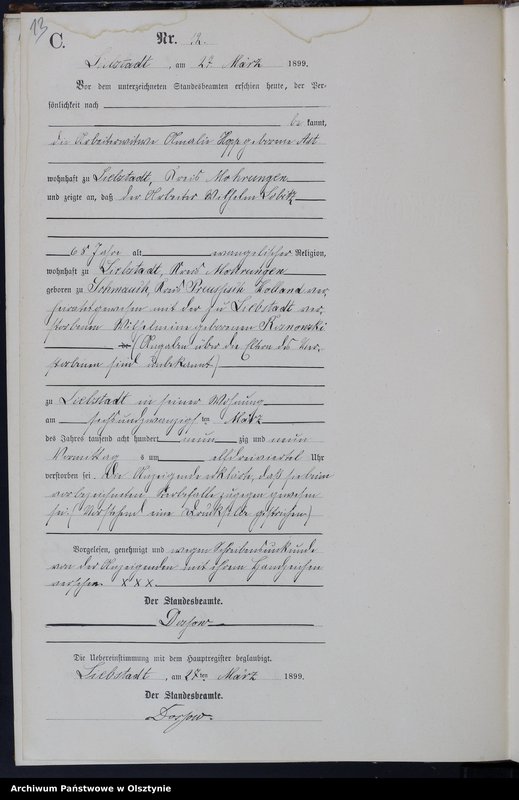 13
C.
Nr. 12.
Liebstadt, am 27. März 1899.
Vor dem unterzeichneten Standesbeamten erschien heute, der Per-
sönlichkeit nach
be kannt,
die Arbeiterwitwe Amalie geborene Ast
wohnhaft zu Liebstadt, Kreis Mohrungen
und zeigte an, daß der Arbeiter Wilhelm
68 Jahre alt evangelischer Religion,
wohnhaft zu Liebstadt, Kreis Mohrungen
geboren zu Schmauch, Kreis Preussisch Holland ver-
heirathet gewesen mit der zu Liebstadt ver-
storbenen Wilhelmine geborenen
(Angaben über die Eltern des Ver-
storbenen sind unbekannt)
zu Liebstadt in seiner Wohnung
am sechsundzwanzigsten März
des Jahres tausend acht hundert neun zig und neun
Vormittag s um elfdreiviertel Uhr
verstorben sei. Die Anzeigende erklärte, daß sie beim
vorbezeichneten Sterbefalle zugegen gewesen
sei. (Vorstehend eine Druckstelle gestrichen)
Vorgelesen, genehmigt und wegen Schreibensunkunde
von der Anzeigenden mit ihrem Handzeichen
versehen xxx.
Der Standesbeamte.
Dossow
Die Uebereinstimmung mit dem Hauptregister beglaubigt.
Liebstadt, am 27ten März 1899.
Der Standesbeamte.
Dossow.
Archiwum Państwowe w Olsztynie